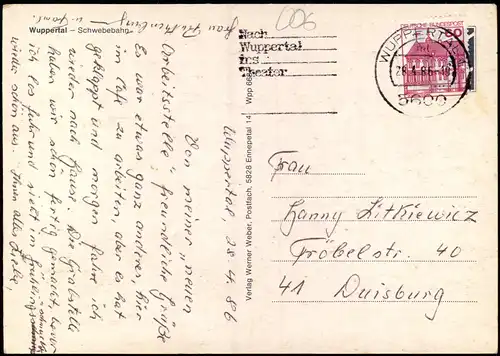 Wuppertal – Schwebebahn
006
Wuppertal 28.4.86
Von meiner "neuen
Arbeitsstelle" freundliche Grüße
Es war etwas ganz anderes, hier
im Cafe zu arbeiten, aber es hat
geklappt und morgen fahre ich
wieder nach Hause. Die Grabstelle
haben wir schon fertig gemacht, bevor
ich los fuhr und sieht im Frühlings
wieder schön aus. Ihnen alles Liebe,
Frau
Verlag Werner Weber, Postfach, 5828 Ennepetal 14
Nach
Wuppertal
ins
Theater
DEUTSCHE BUNDESPOST
WUPPERTAL
28.4.86
5600
Frau
Hanny Litkiewicz
Fröbelstr. 40
41 Duisburg